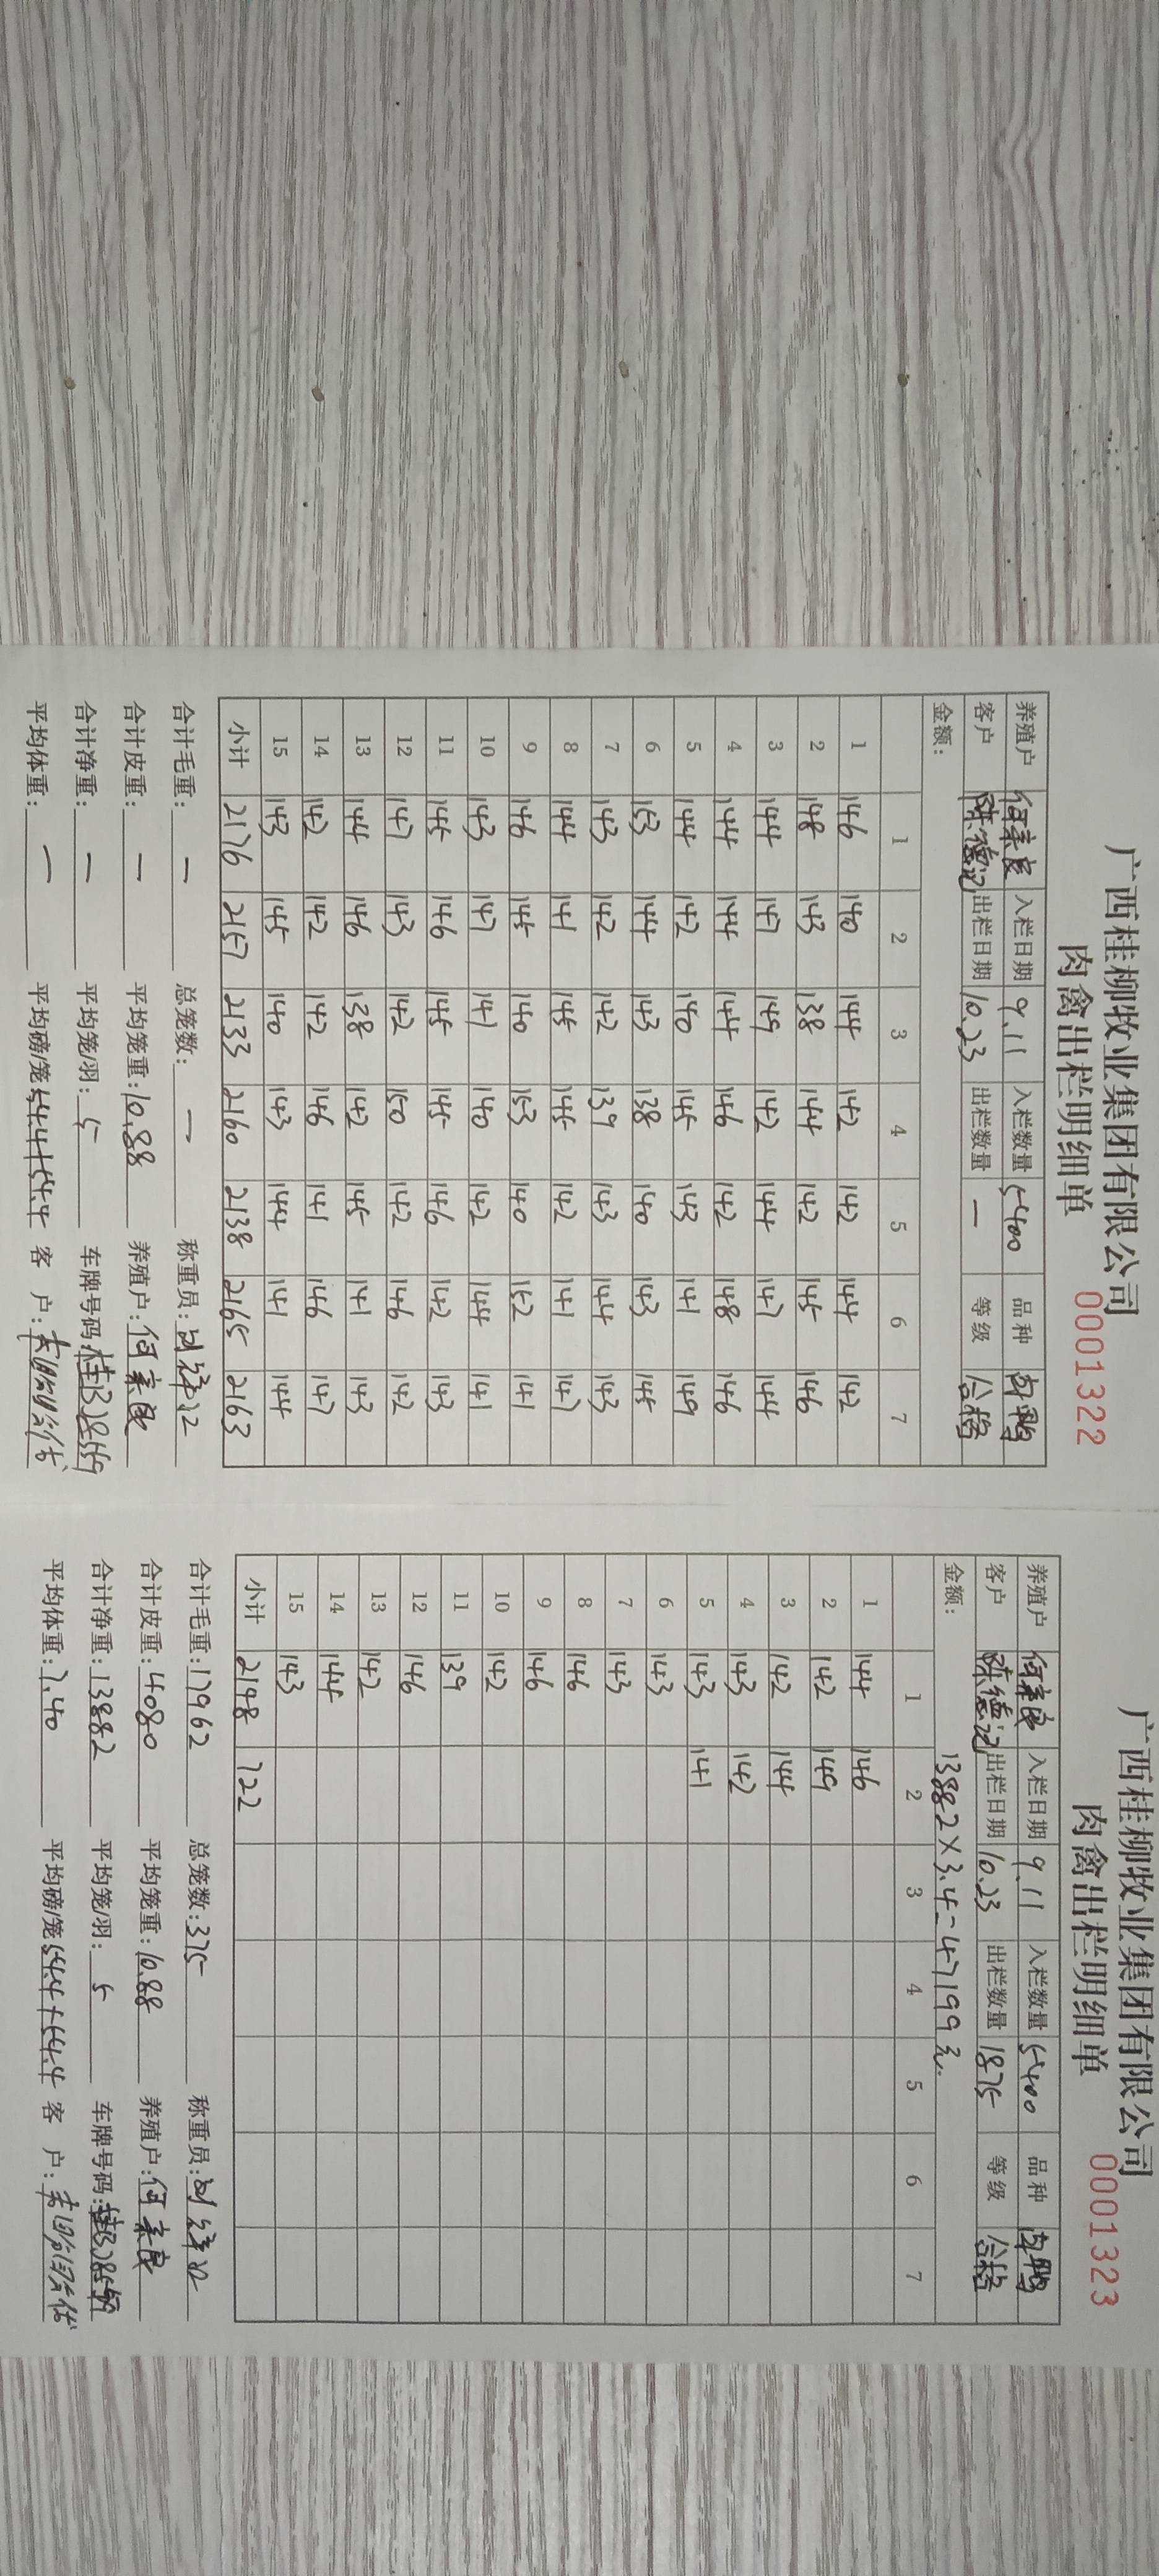 广西桂柳牧业集团有限公司
肉禽出栏明细单 0001322
养殖户 入栏日期 9.11 入栏数量 5400 品种 肉鸭
客户 陈德记 出栏日期 10.23 出栏数量 — 等级 合格
金额：
1 2 3 4 5 6 7
1 146 140 144 142 142 144 142
2 148 143 138 144 142 145 146
3 144 147 149 142 144 147 144
4 144 144 144 146 142 148 146
5 144 142 140 145 143 141 149
6 153 144 143 138 140 143 145
7 143 142 142 139 143 144 143
8 144 141 145 145 142 141 147
9 146 145 140 153 140 152 141
10 143 147 141 140 142 144 141
11 145 146 145 145 146 142 143
12 147 143 142 150 142 146 142
13 144 146 138 142 145 141 143
14 142 142 142 146 141 146 147
15 143 145 140 143 144 141 144
小计 2176 2157 2133 2160 2138 2165 2163
合计毛重：— 总笼数：— 称重员：
合计皮重：— 平均笼重：10.88 养殖户：
合计净重：— 平均笼/羽：5 车牌号码：
平均体重：— 平均磅/笼 54.4+54.4 客 户：
广西桂柳牧业集团有限公司
肉禽出栏明细单 0001323
养殖户 入栏日期 9.11 入栏数量 5400 品种 肉鸭
客户 陈德记 出栏日期 10.23 出栏数量 1875 等级 合格
金额： 13882×3.4=47199元.
1 2 3 4 5 6 7
1 144 146
2 142 149
3 142 144
4 143 142
5 143 141
6 143
7 143
8 146
9 146
10 142
11 139
12 146
13 142
14 144
15 143
小计 2148 722
合计毛重：17962 总笼数：375 称重员：
合计皮重：4080 平均笼重：10.88 养殖户：
合计净重：13882 平均笼/羽：5 车牌号码：
平均体重：7.40 平均磅/笼 54.4+54.4 客 户：